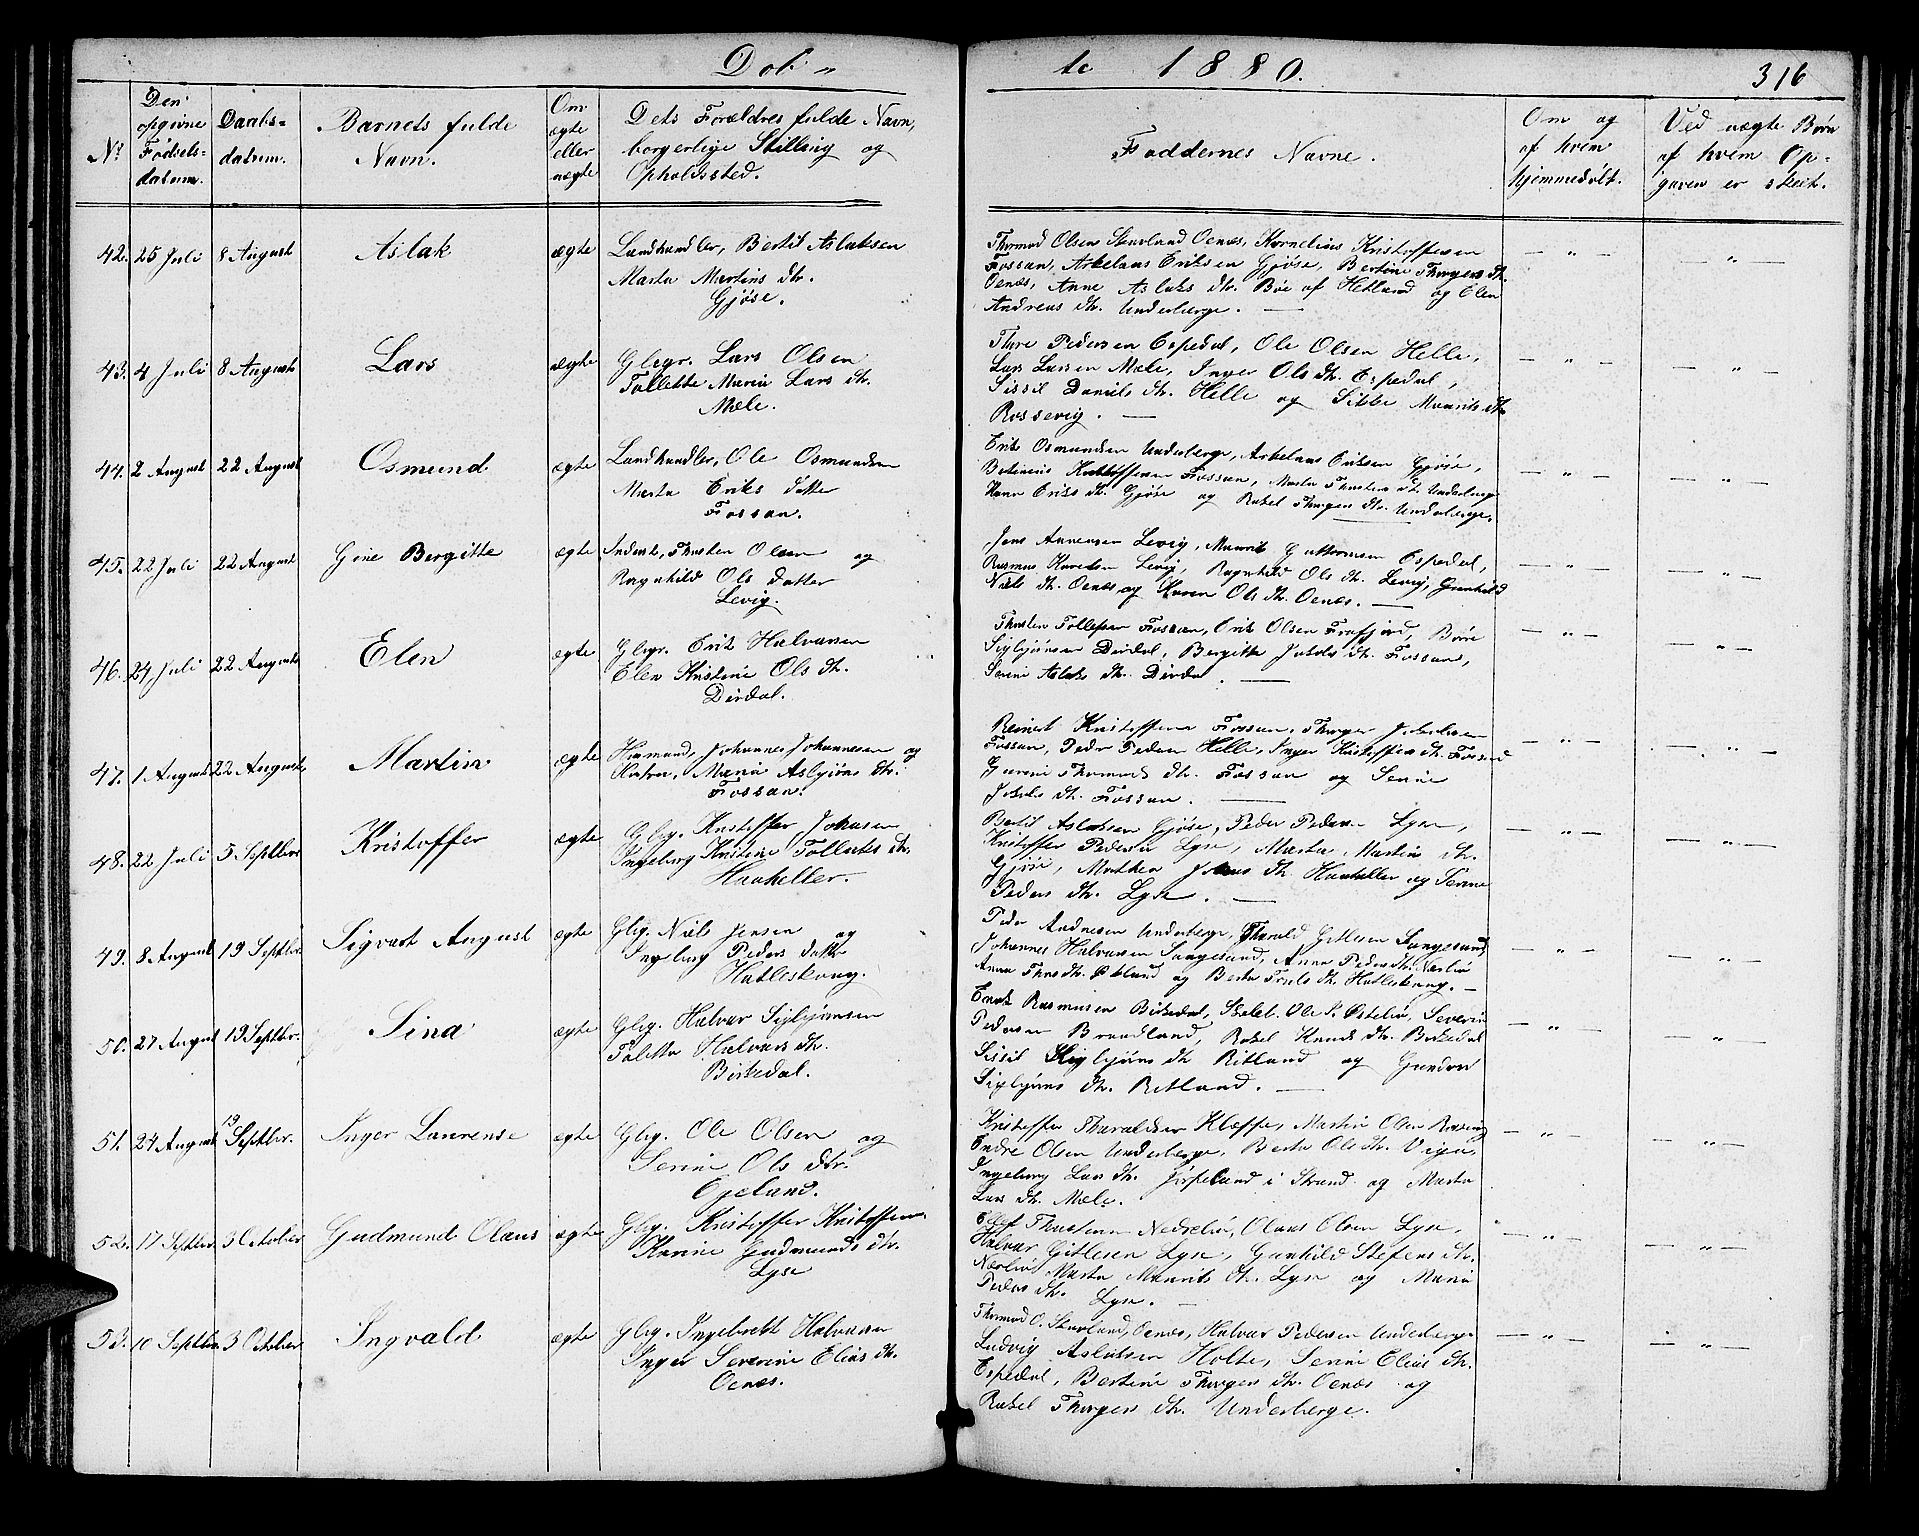 Døb- te 1880. 316
No
Den opgivne Fødsels-datum.
Daabs-datum.
Barnets fulde Navn.
Om ægte eller uægte
Dets Forældres fulde Navn, borgerlige Stilling og Opholdssted.
Faddernes Navne.
Om og af hvem hjemmedøbt.
Ved uægte Børn af hvem Opgaven er skeet.
42. 25 Juli 8 August Aslak ægte Landhandler, Bertil Aslaksen
Marta Martins dtr.
Gjøse.
Thormod Olsen Skurland Oenæs, Kornelius Kristoffersen
Fossan, Arkelaus Eriksen Gjøse, Bertine Thorgers dtr.
Oenæs, Anne Aslaks dtr. Bøe af Hetland og Elen
Andreas dtr. Underberge. —
43. 4 Juli 8 August Lars ægte Gbrgr. Lars Olsen
Tollette Marie Lars dtr.
Mæle.
Thore Pedersen Espedal, Ole Olsen Helle,
Lars Larsen Mæle, Inger Ols dtr. Espedal,
Sissil Daniels dtr. Helle og Sibbe Maurits dtr.
Rossevig. —
44. 2 August 22 August Osmund ægte Landhandler, Ole Osmundsen
Marta Eriks datter
Fossan.
Erik Osmundsen Underberge, Arkelaus Eriksen Gjøse,
Kristoffersen Fossan, Marta Thorsten dtr. Underberge
Eriks dtr. Gjøse og Rakel Thorgers dtr. Underberge.
45. 22 Juli 22 August Gine Bergitte ægte Inderst, Thosten Olsen og
Ragnhild Ols datter
Levig.
Jens Levig, Maurits Guttormsen Espedal,
Rasmus Levig, Ragnhild Ols dtr. Levig, Gunhild
Niels dtr. Oenæs og Karen Ols dtr. Oenæs. —
46. 24 Juli 22 August Elen ægte Gbrgr. Erik Halvorsen
Elen Kristine Ols dtr.
Dirdal.
Thosten Tollefsen Fossan, Erik Olsen Frafjord, Børe
Sigbjørnsen Dirdal, Bergitte Jakobs dtr. Fossan,
Serine Aslaks dtr. Dirdal. —
47. 1 August 22 August Martin ægte Huusmand, Johannes Johannesen og
Kone, Marie Asbjørns dtr.
Fossan.
Reinert Kristoffersen Fossan, Thorger Jakobsen
Fossan, Peder Pedersen Helle, Inger Kristoffers dtr. Fossan
Gurine Thormods dtr. Fossan og Serine
Jakobs dtr. Fossan. —
48. 22 Juli 5 Septbr Kristoffer ægte Gbrg. Kristoffer Johnsen
Ingeborg Kristine Tollaks dtr.
Haaheller.
Bertil Aslaksen Gjøse, Peder Pedersen Lyse,
Kristoffer Pedersen Lyse, Marta Martins dtr.
Gjøse, Mathea Johns dtr. Haaheller og Serine
Peders dtr. Lyse. —
49. 8 August 19 Septbr. Sigvart August ægte Gbrg. Niels Jensen og
Ingeborg Peders datter
Hatleskaag.
Peder Andresen Underberge, Tharald Gitlesen Sangesand,
Johannes Halvorsen Sangesand, Anna Peders dtr. Nærlie
Anna Thors dtr. og Berta Pouls dtr. Hatleskaag. —
50. 27 August 19 Septbr. Sina ægte Gbrg. Halvor Sigbjørnsen
Toletta Halvors dtr.
Birkedal.
Enok Rasmusen Birkedal, Skolel. Ole P. Østebø, Severin
Pedersen Brandland, Rakel Knuds dtr. Birkedal
Sissil Sigbjørns dtr Ritland og Gundor
Sigbjørns dtr. Ritland. —
51. 24 August 19 Septbr. Inger Laurense ægte Gbrg. Ole Olsen og
Serine Ols dtr.
Ejeland.
Kristoffer Tharaldsen Kleppe, Martin Olsen
Endre Olsen Underberge, Berta Ols dtr. Viga
Ingeborg Lars dtr. Jørpeland i Strand og Marta
Lars dtr. Mæle.
52. 17 Septbr. 3 October Gudmund Olaus ægte Gbrg. Kristoffer Kristoffersen
Karine Gudmunds dtr.
Lyse
Thorsen Nedrebø, Olaus Olsen Lyse,
Halvor Gitlesen Lyse, Gunhild Stefens dtr.
Nærbø, Marta Maurits dtr. Lyse og Maria
Peders dtr. Lyse. —
53. 10 Septbr. 3 October Ingvald ægte Gbrg. Ingebrett Halvorsen
Inger Severine Elias dtr.
Oenæs.
Thormod O. Skurland, Oenæs, Halvor Pedersen Underberge
Ludvig Aslaksen Holte, Serine Elias dtr.
Espedal, Bertine Thorgers dtr. Oenæs og
Rakel Thorgers dtr. Underberge.